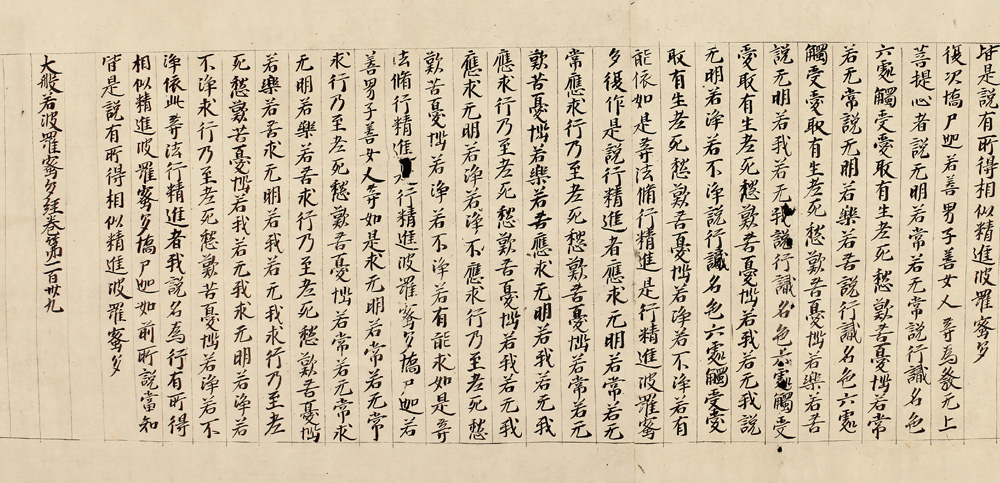 皆是說有所得相似精進波羅蜜多
復次憍尸迦若善男子善女人等為發无上
菩提心者說无明若常若无常說行識名色
六處觸受愛取有生老死愁歎苦憂惱若常
若无常說无明若樂若苦說行識名色六處
觸受愛取有生老死愁歎苦憂惱若樂若苦
說无明若我若无我說行識名色六處觸受
愛取有生老死愁歎苦憂惱若我若无我說
无明若淨若不淨說行識名色六處觸受愛
取有生老死愁歎苦憂惱若淨若不淨若有
能依如是等法脩行精進是行精進波羅蜜
多復作是說行精進者應求无明若常若无
常應求行乃至老死愁歎苦憂惱若常若无
歎苦憂惱若樂若苦應求无明若我若无我
應求行乃至老死愁歎苦憂惱若我若无我
應求无明若淨若淨不應求行乃至老死愁
歎苦憂惱若淨若不淨若有能求如是等
法脩行精進行精進波羅蜜多憍尸迦若
善男子善女人等如是求无明若常若无常
求行乃至老死愁歎苦憂惱若常若无常求
无明若樂若苦求行乃至老死愁歎苦憂惱
若樂若苦求无明若我若无我求行乃至老
死愁歎苦憂惱若我若无我求无明若淨若
不淨求行乃至老死愁歎苦憂惱若淨若不
淨依此等法行精進者我說名為行有所得
相似精進波羅蜜多憍尸迦如前所說當知
皆是說有所得相似精進波羅蜜多
大般若波羅蜜多經卷第一百卌九